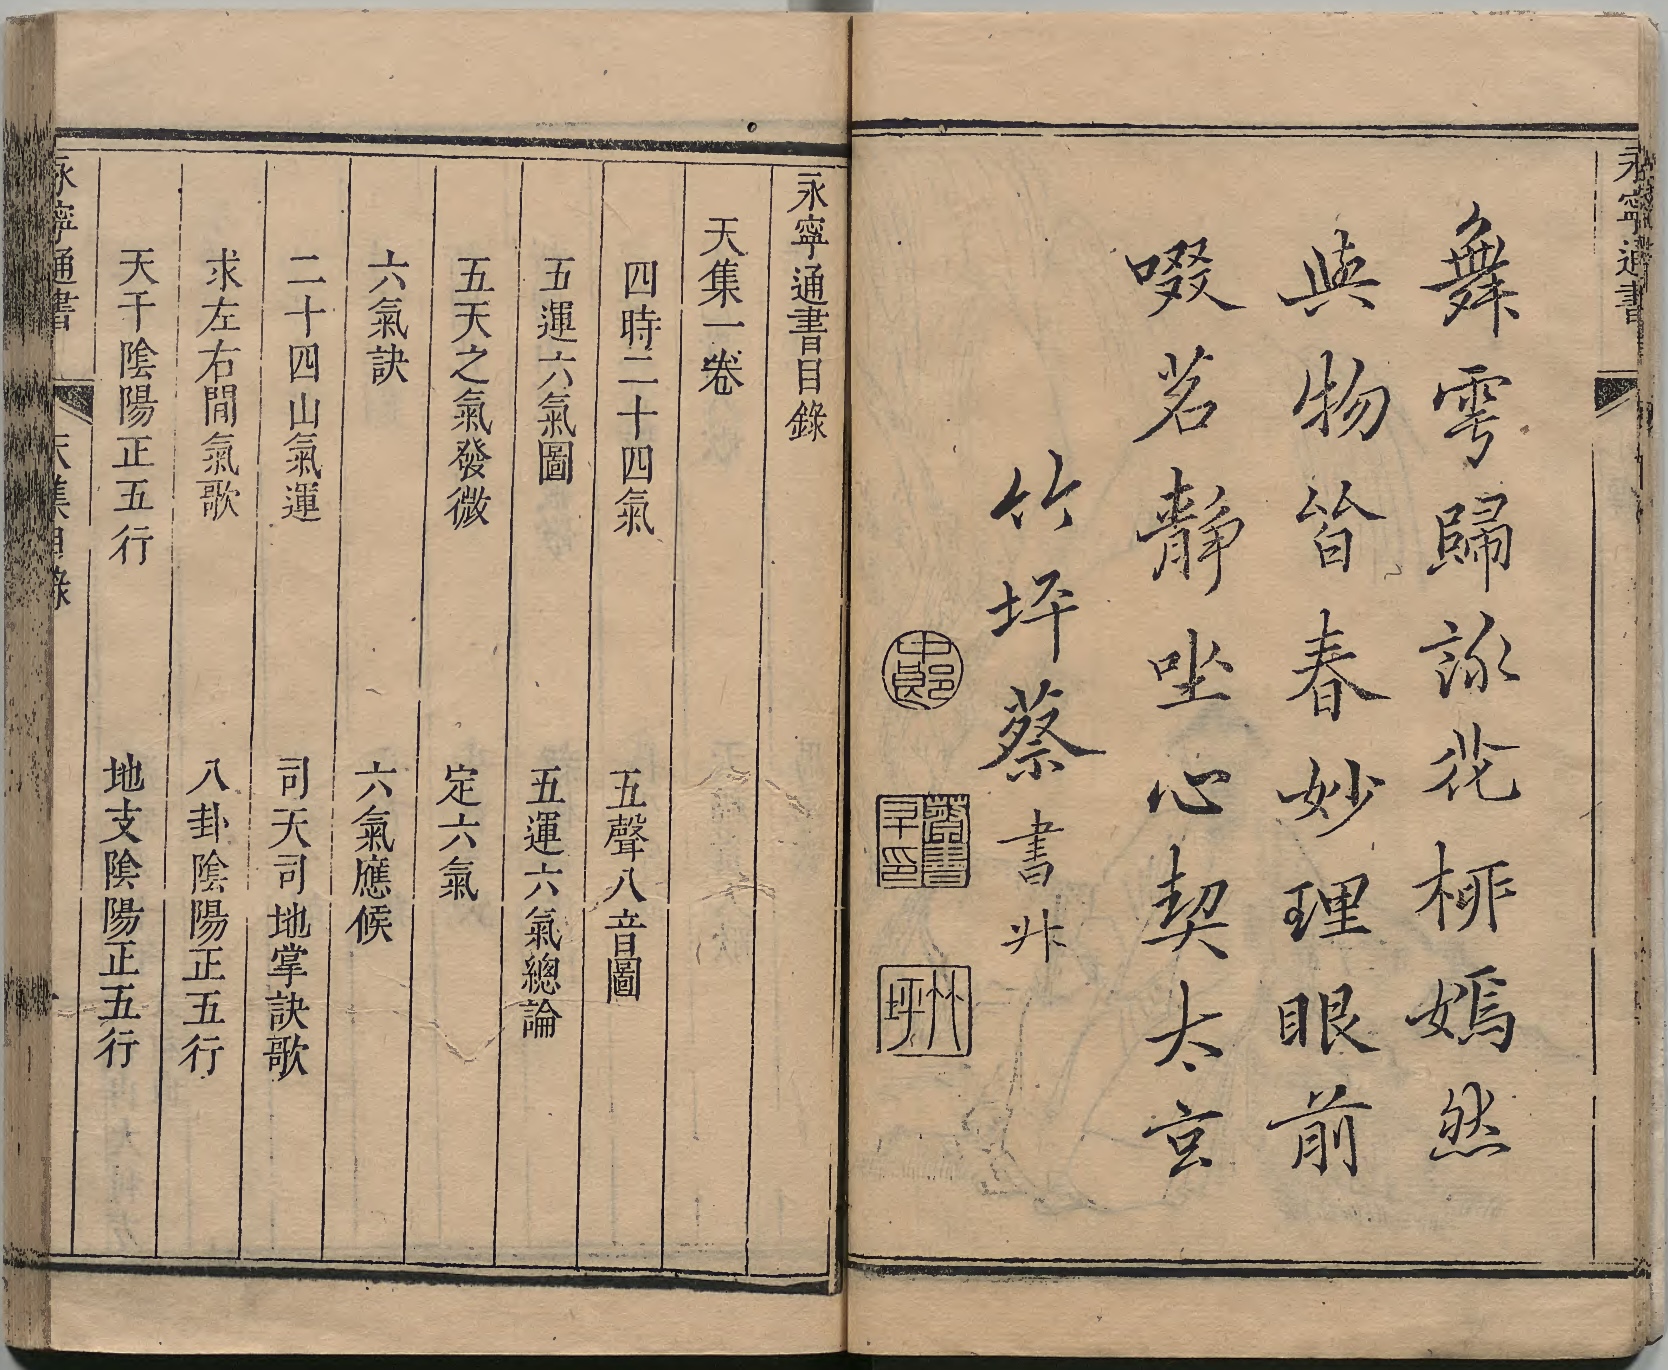 永寧通書
舞雩歸詠花栁嫣然
與物皆春妙理眼前
啜茗靜坐心契太玄
竹坪蔡書
中郎
竹坪
永寧通書目錄
天集一卷
四時二十四氣
五聲八音圖
五運六氣圖
五運六氣總論
五天之氣發微
定六氣
六氣訣
六氣應候
二十四山氣運
司天司地掌訣歌
求左右間氣歌
八卦陰陽正五行
天千陰陽正五行
地支陰陽正五行
永寧通書
天集目錄